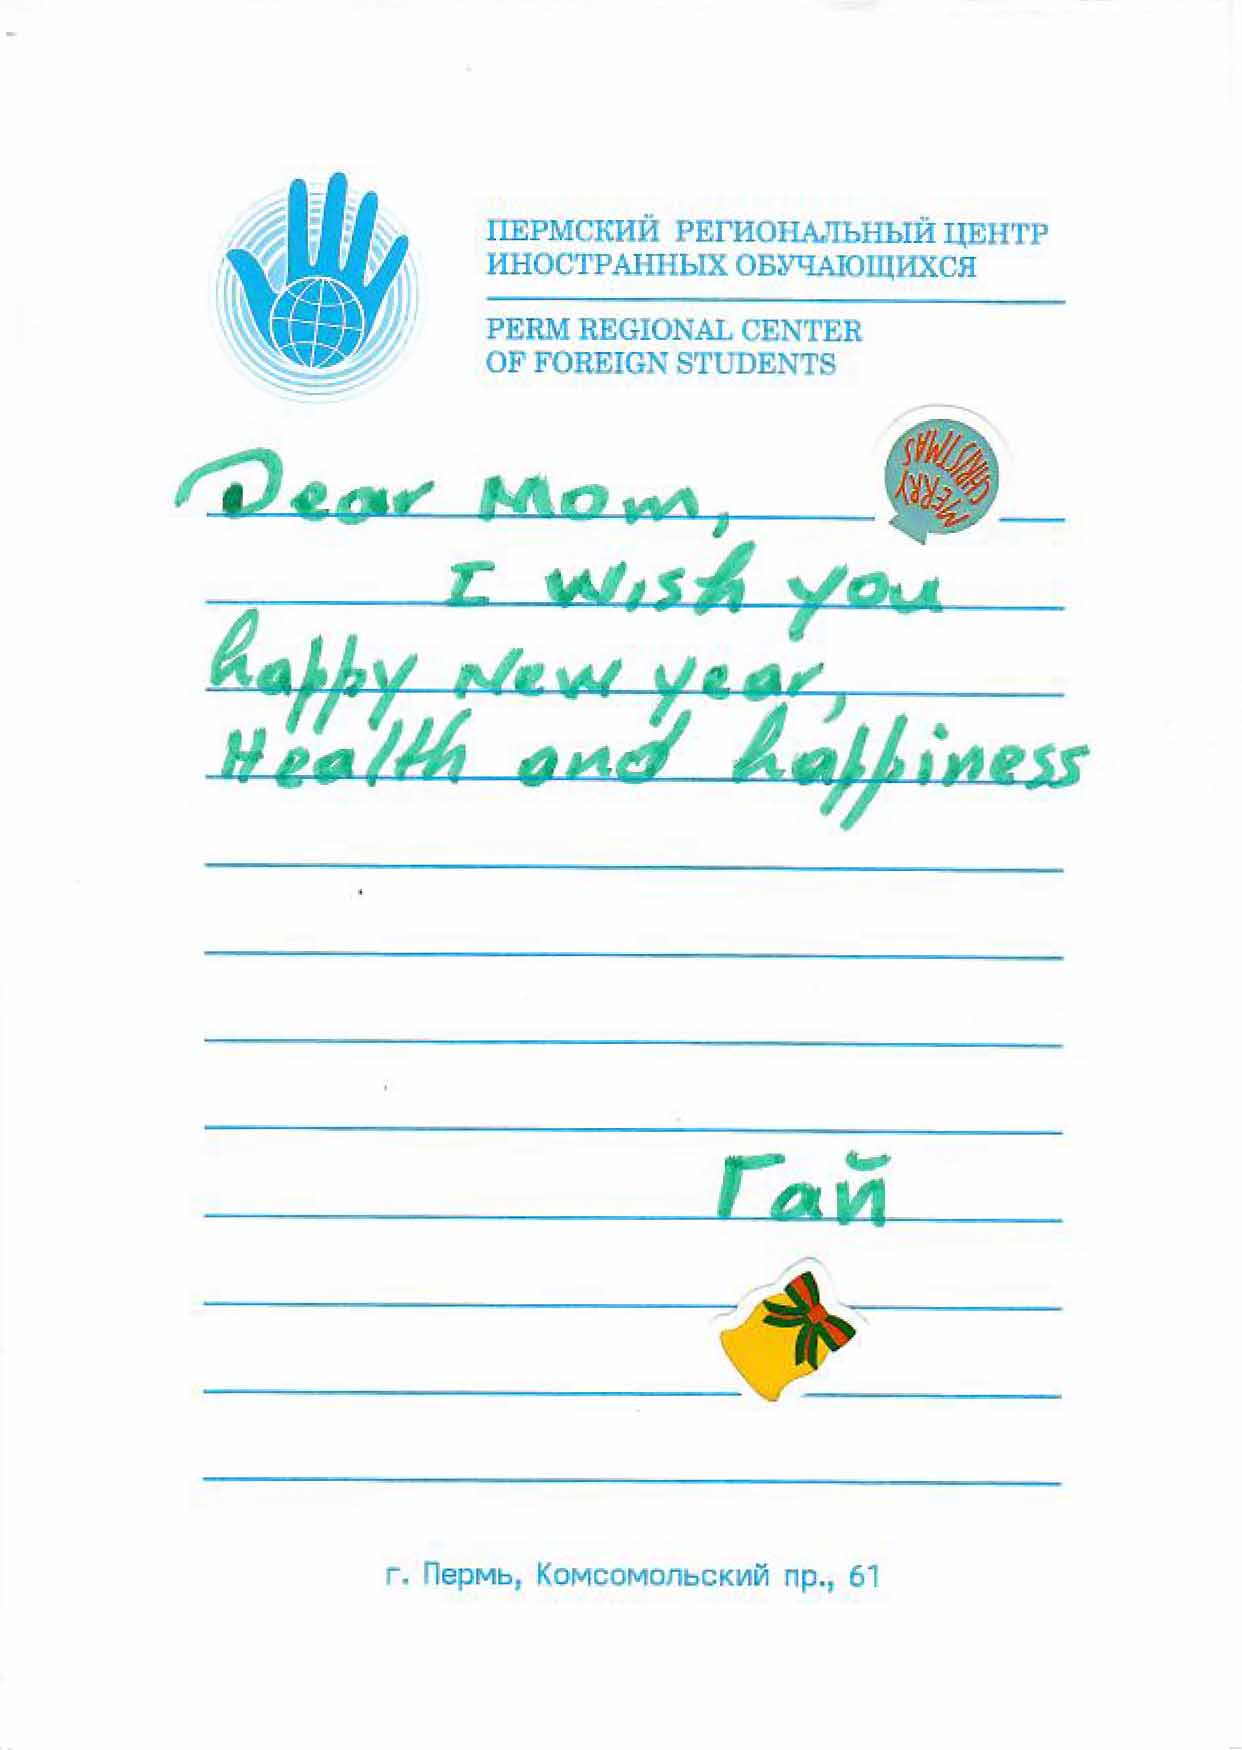 ПЕРМСКИЙ РЕГИОНАЛЬНЫЙ ЦЕНТР
ИНОСТРАННЫХ ОБУЧАЮЩИХСЯ
PERM REGIONAL CENTER
OF FOREIGN STUDENTS
MERRY
CHRISTMAS
Dear Mom,
I wish you
happy New year,
Health and happiness
Гай
г. Пермь, Комсомольский пр., 61